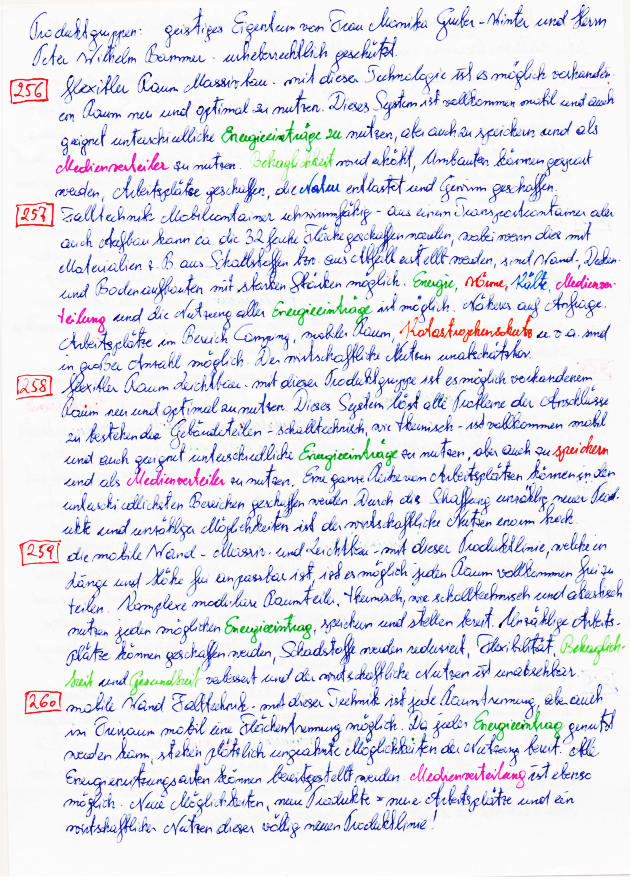 Produktgruppen: geistiges Eigentum von Frau Monika Gruber-Winter und Herrn
Peter Wilhelm Bammer - urheberrechtlich geschützt.
256 flexibler Raum Massivbau - mit dieser Technologie ist es möglich vorhanden-
en Raum neu und optimal zu nutzen. Dieses System ist vollkommen mobil und auch
geeignet unterschiedliche Energieeinträge zu nutzen, aber auch zu speichern und als
Medienverteiler zu nutzen. Behaglichkeit wird erhöht, Umbauten können gespart
werden, Arbeitsplätze geschaffen, die Natur entlastet und Gewinn geschaffen.
257 Falttechnik Mobilcontainer schwimmfähig - aus einem Transportcontainer aber
auch Aufbau kann ca die 32 fache Fläche geschaffen werden, wobei wenn dies mit
Materialien z.B aus Schaltstoffen bzw. aus Abfall erstellt werden, sind Wand-, Decken-
und Bodenaufbauten mit starken Stärken möglich. Energie, Wärme, Kälte, Medienver-
teilung und die Nutzung aller Energieeinträge ist möglich. Näheres auf Anfrage.
Arbeitsplätze im Bereich Camping, mobiler Raum, Katastrophenschutz u.v.a. sind
in großer Anzahl möglich. Der wirtschaftliche Nutzen unabschätzbar.
258 flexibler Raum Leichtbau - mit dieser Produktgruppe ist es möglich vorhandenen
Raum neu und optimal zu nutzen. Dieses System löst alle Probleme der Anschlüsse
zu bestehenden Gebäudeteilen - schalltechnisch, wie thermisch - ist vollkommen mobil
und auch geeignet unterschiedliche Energieeinträge zu nutzen, aber auch zu speichern
und als Medienverteiler zu nutzen. Eine ganze Reihe von Arbeitsplätzen können in den
unterschiedlichsten Bereichen geschaffen werden. Durch die Schaffung unzählig neuer Prod-
ukte und unzähliger Möglichkeiten ist der wirtschaftliche Nutzen enorm hoch.
259 die mobile Wand - Massiv- und Leichtbau - mit dieser Produktlinie, welche in
Länge und Höhe frei anpassbar ist, ist es möglich jeden Raum vollkommen frei zu
teilen. Komplexe modulare Raumteiler, thermisch, wie schalltechnisch und akustisch
nutzen jeden möglichen Energieeintrag, speichern und stellen bereit. Unzählige Arbeits-
plätze können geschaffen werden, Schadstoffe werden reduziert, Flexibilität, Behaglich-
keit und Gesundheit verbessert und der wirtschaftliche Nutzen ist unabsehbar.
260 mobile Wand Falttechnik - mit dieser Technik ist jede Raumtrennung, aber auch
im Freiraum mobil eine Flächentrennung möglich. Da jeder Energieeintrag genutzt
werden kann, stehen plötzlich ungeahnte Möglichkeiten der Nutzung bereit. Alle
Energienutzungsarten können bereitgestellt werden. Medienverteilung ist ebenso
möglich. Neue Möglichkeiten, neue Produkte = neue Arbeitsplätze und ein
wirtschaftlicher Nutzen dieser völlig neuen Produktlinie!